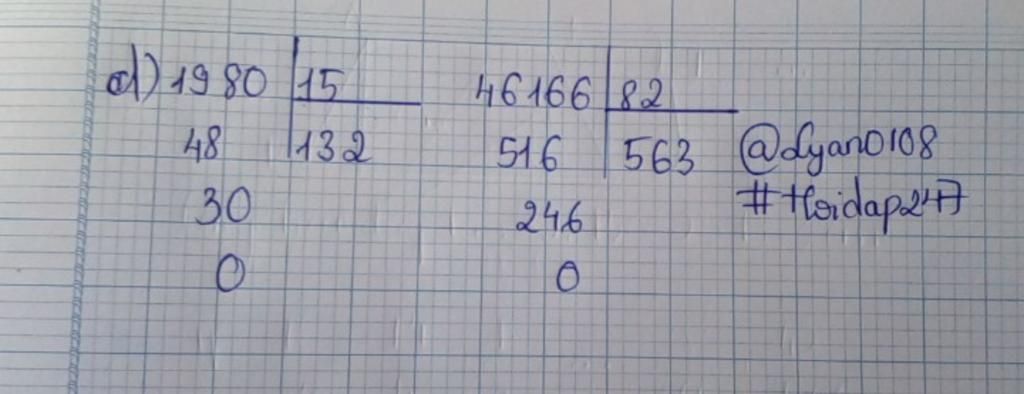 d) 1980 | 15 46166 | 82
48 | 132 516 | 563 @dyan0108
30 246 #Hoidap247
0 0